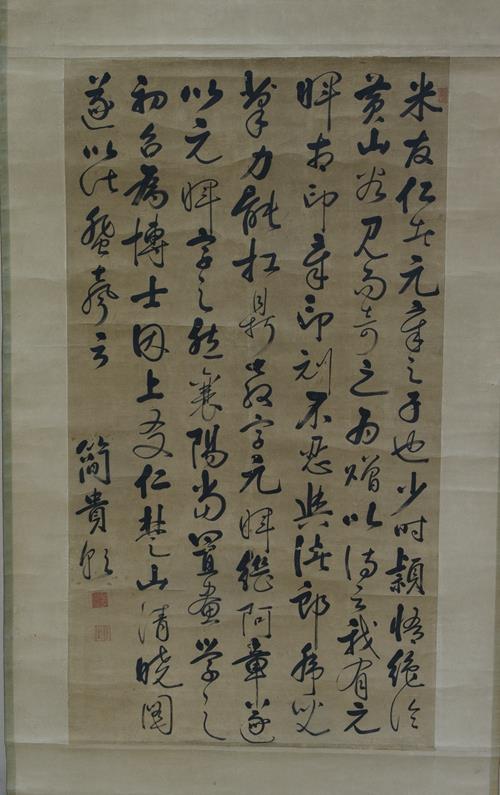 米友仁者元章之子也少時穎悟絕倫
黃山谷見而奇之為贈以詩云我有元
暉古印章印刓不忍與諸郎虎兒
筆力能扛鼎教字元暉繼阿章遂
以元暉字之然襄陽當置畫學之
初召為博士因上友仁楚山清曉圖
遂以此蜚聲云
簡貴